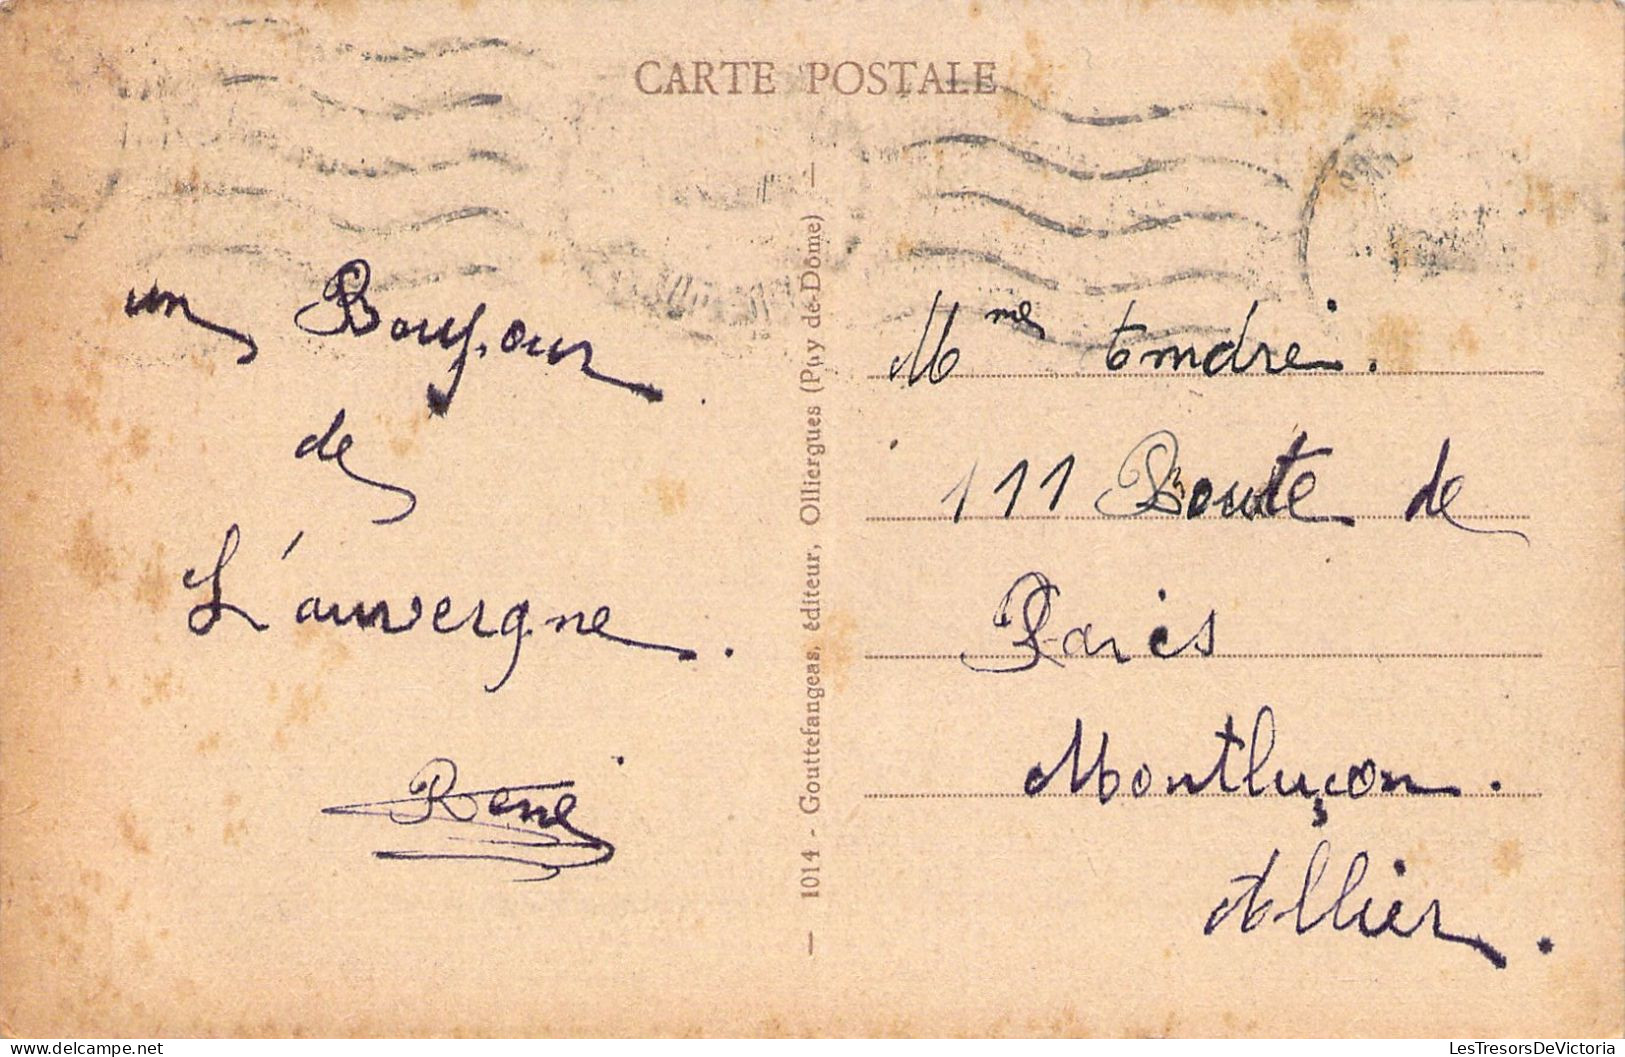 CARTE POSTALE
un Boujour
de
L'auvergne.
René
— 1014 - Gouttefangeas, éditeur, Olliergues (Puy de Dôme) —
Mme Andrei.
111 Route de
Paris
Montluçon.
Allier.
LesTresorsDeVictoria